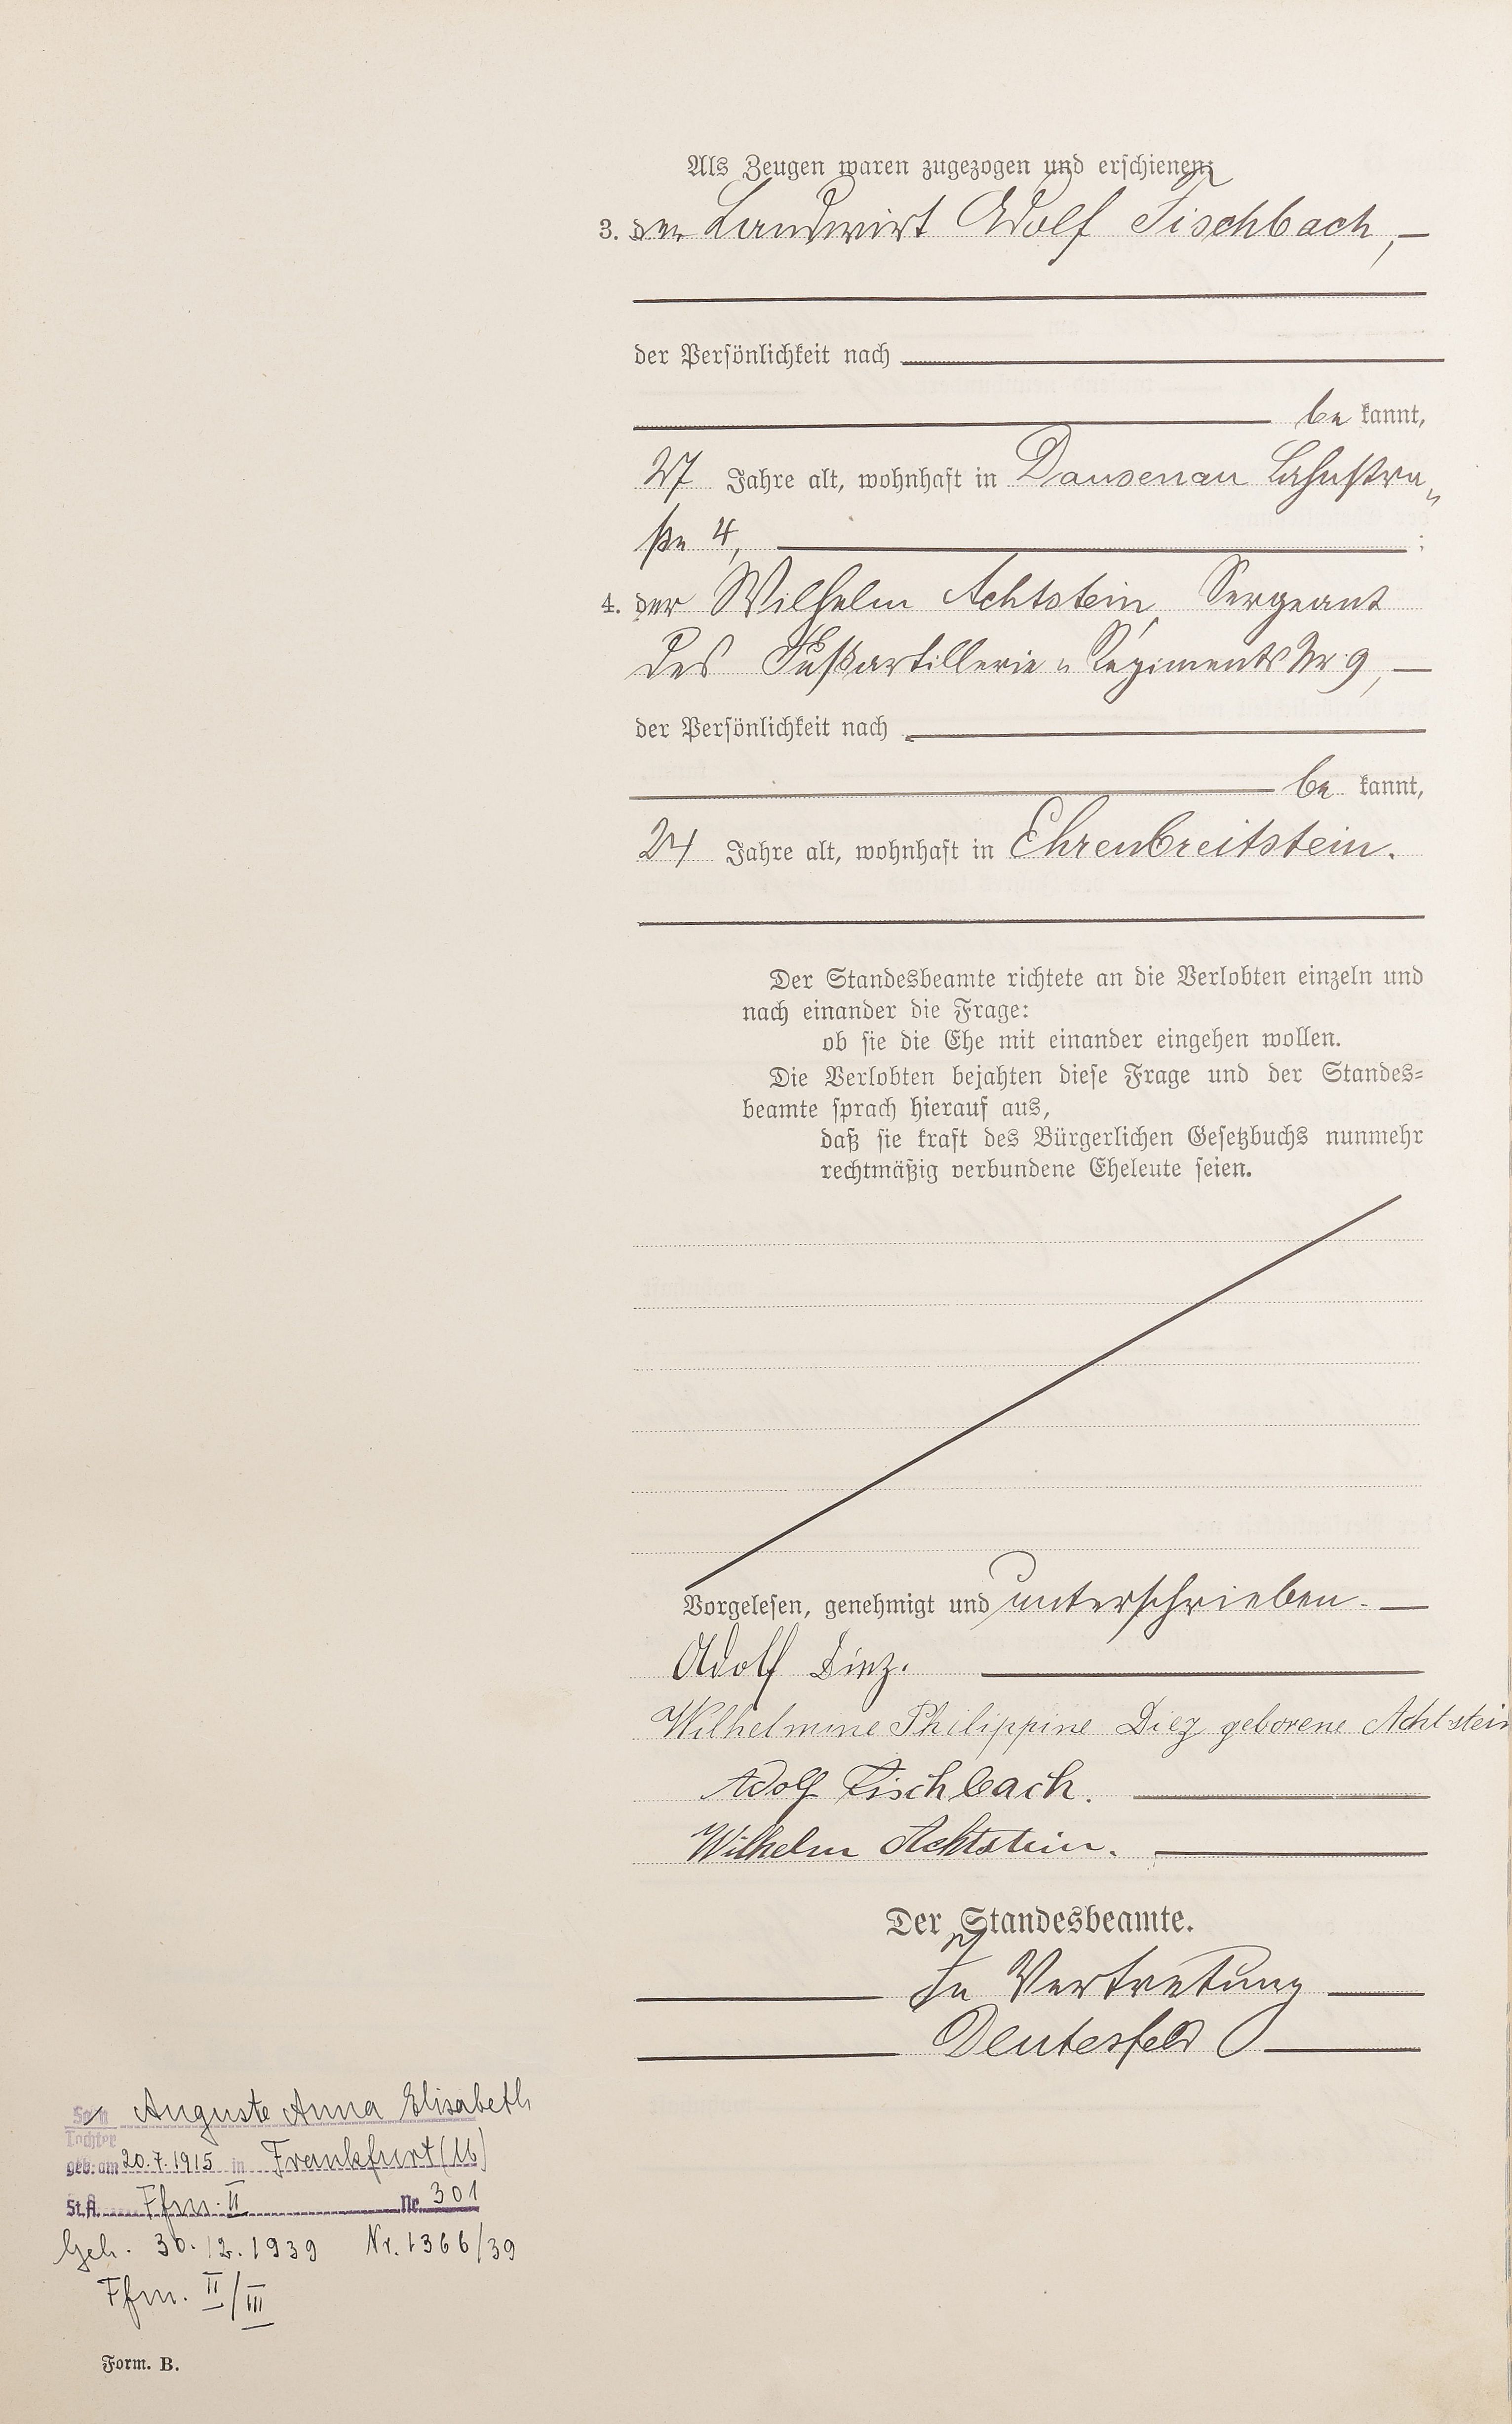 Als Zeugen waren zugezogen und erschienen:
3. der Landwirt Adolf Fischbach, —
der Persönlichkeit nach
be kannt,
27 Jahre alt, wohnhaft in Dausenau Lahnstra„
ße 4, :
4. der Wilhelm Achtstein, Sergeant
des Fußartillerie„Regiments Nr. 9, —
der Persönlichkeit nach
be kannt,
24 Jahre alt, wohnhaft in Ehrenbreitstein.
Der Standesbeamte richtete an die Verlobten einzeln und
nach einander die Frage:
ob sie die Ehe mit einander eingehen wollen.
Die Verlobten bejahten diese Frage und der Standes=
beamte sprach hierauf aus,
daß sie kraft des Bürgerlichen Gesetzbuchs nunmehr
rechtmäßig verbundene Eheleute seien.
Vorgelesen, genehmigt und unterschrieben. —
Adolf Diez.
Wilhelmine Philippine Diez geborene Achtstein
Adolf Fischbach.
Wilhelm Achtstein.
Der Standesbeamte.
In Vertretung
Deutesfeld
Sohn Auguste Anna Elisabeth
Tochter
geb. am 20.7.1915 in Frankfurt (M)
St.A. Ffm. II Nr. 301
Geh. 30.12.1939 Nr. 1366/39
Ffm. II/III
Form. B.